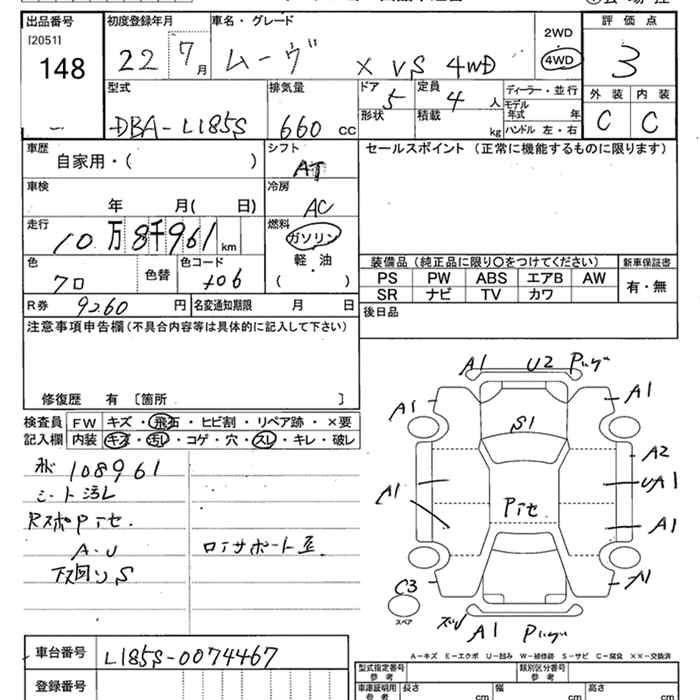 出品番号 初度登録年月 車名・グレード 2WD 評価点
[2051]
148 22 7月 ムーヴ X VS 4WD 4WD 3
型式 排気量 ドア 定員 ディーラー・並行 外装 内装
DBA-L185S 660 cc 5 4人 モデル年式 年 C C
形状 積載 kg ハンドル 左・右
車歴 シフト セールスポイント (正常に機能するものに限ります)
自家用・( ) AT
車検 冷房
年 月( 日) AC
走行 燃料
10万8千961km ガソリン
軽油
色 色替 色コード 装備品 (純正品に限り○をつけてください) 新車保証書
クロ ( )
PS PW ABS エアB AW 有・無
SR ナビ TV カワ
R券 9260円 名変通知期限 月 日 後日品
注意事項申告欄(不具合内容等は具体的に記入して下さい)
修復歴 有 [箇所 ]
検査員 FW キズ・飛石・ヒビ割・リペア跡・×要
記入欄 内装 キズ・汚レ・コゲ・穴・スレ・キレ・破レ
108961
シート汚レ
Pite.
A・U
下回りS
A1 U2
A1 A1
S1
A2
UA1
A1
Pite
A1
A1
C3
スペア
A1
A-キズ E-エクボ U-凹み W-補修跡 S-サビ C-腐食 XX-交換済
車台番号 L185S-0074467
登録番号
型式指定番号 参考 類別区分番号 参考
車庫証明用 参考 長さ cm 幅 cm 高さ cm